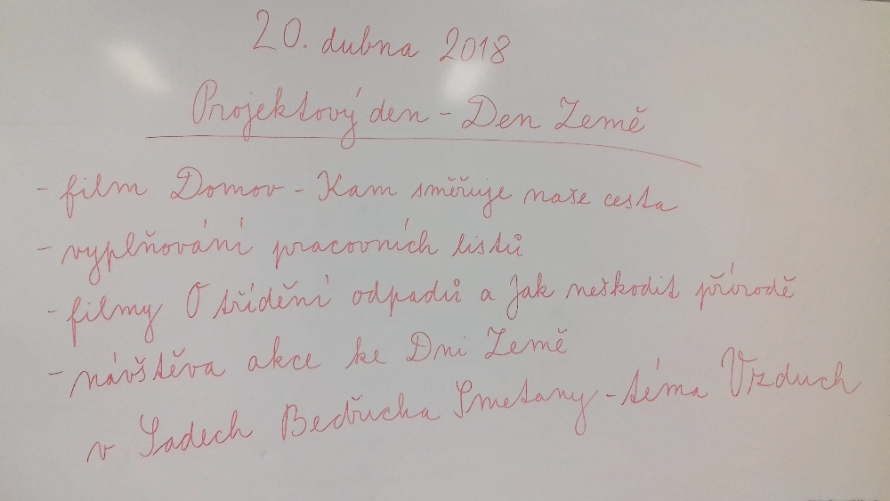 20. dubna 2018
Projektový den - Den Země
- film Domov - Kam směřuje naše cesta
- vyplňování pracovních listů
- filmy O třídění odpadů a Jak neškodit přírodě
- návštěva akce ke Dni Země
v Sadech Bedřicha Smetany - téma Vzduch